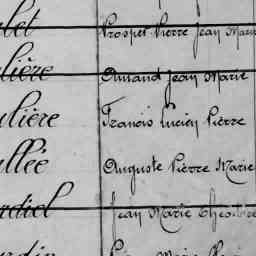 let Prosper Pierre Jean Marie
lière Amand Jean Marie
ulière Francis Lucien Pierre
allée Auguste Pierre Marie
rdiel Jean Marie Théodore